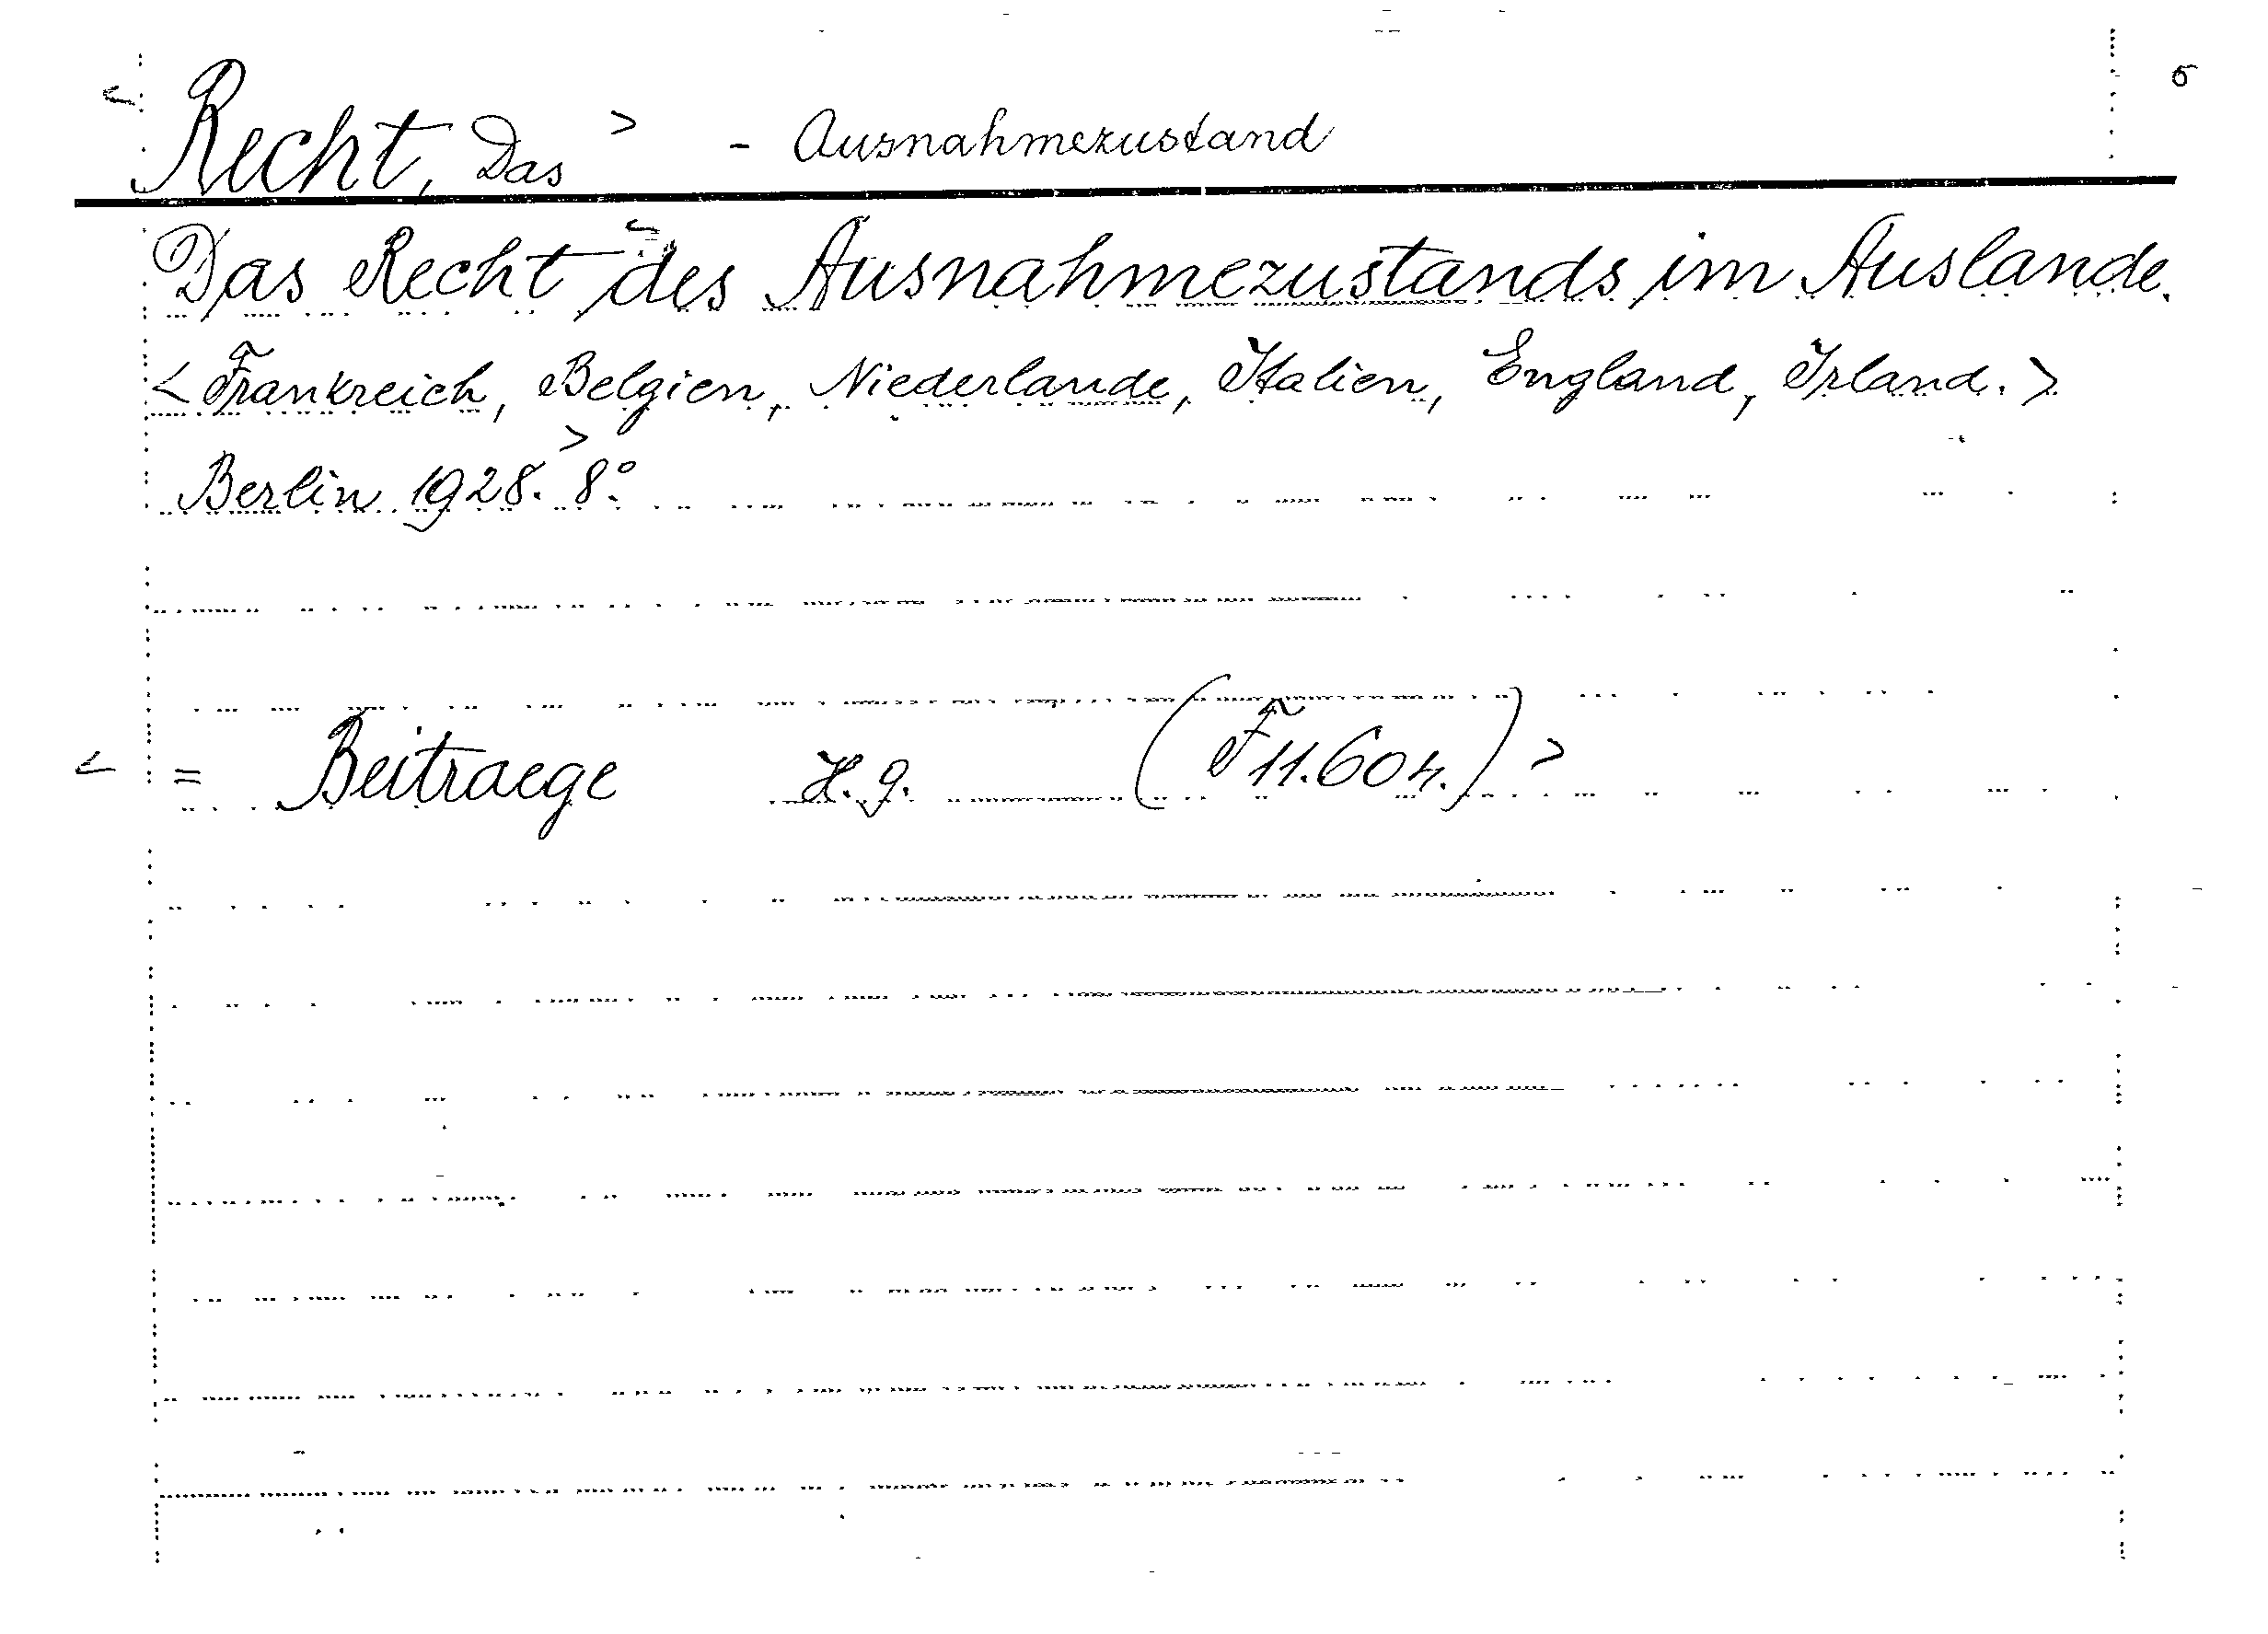 < Recht, Das > - Ausnahmezustand
< Das Recht des Ausnahmezustands im Auslande.
< Frankreich, Belgien, Niederlande, Italien, England, Irland. >
Berlin 1928. > 8°.
< = Beitraege H. 9. (F 11.604.) >